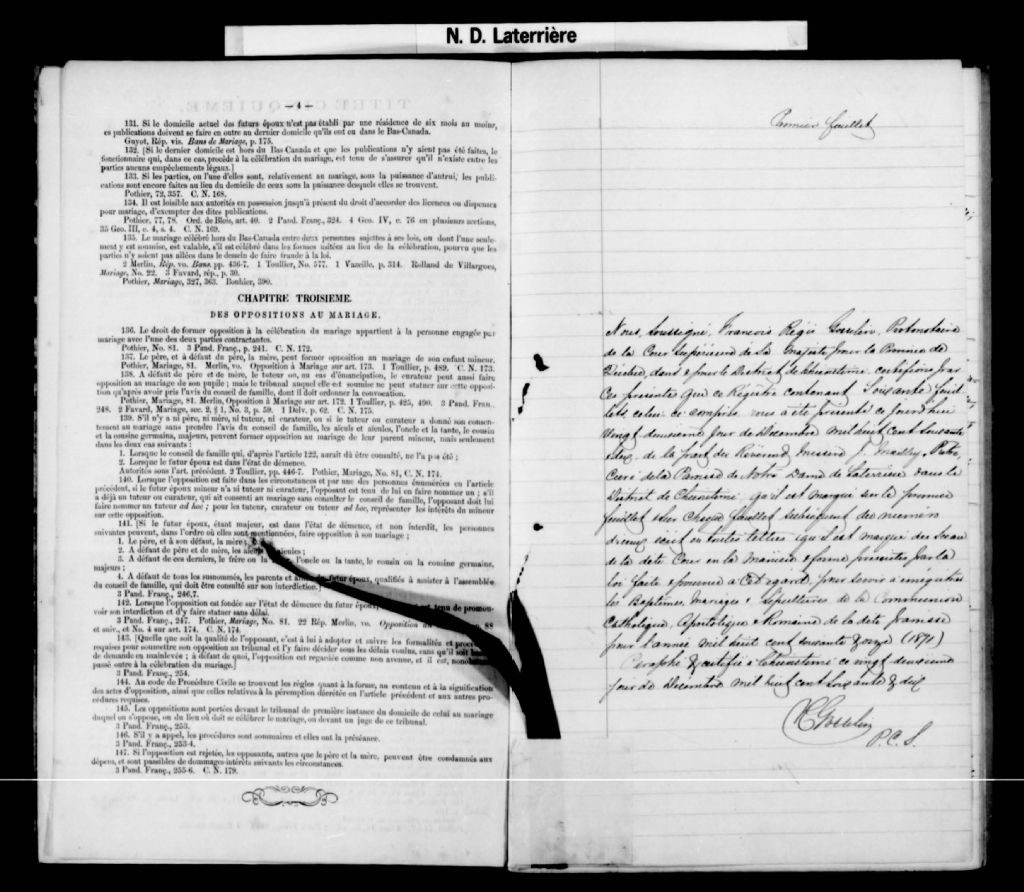 N. D. Laterrière
— 4 —
131. Si le domicile actuel des futurs époux n'est pas établi par une résidence de six mois au moins,
es publications doivent se faire en outre au dernier domicile qu'ils ont eu dans le Bas-Canada.
Guyot, Rép. vis. Bans de Mariage, p. 175.
132. [Si le dernier domicile est hors du Bas Canada et que les publications n'y aient pas été faites, le
fonctionnaire qui, dans ce cas, procède à la célébration du mariage, est tenu de s'assurer qu'il n'existe entre les
parties aucuns empêchements légaux.]
133. Si les parties, ou l'une d'elles sont, relativement au mariage, sous la puissance d'autrui, les publi-
cations sont encore faites au lieu du domicile de ceux sous la puissance desquels elles se trouvent.
Pothier, 72, 357. C. N. 168.
134. Il est loisible aux autorités en possession jusqu'à présent du droit d'accorder des licences ou dispenses
pour mariage, d'exempter des dites publications.
Pothier, 77, 78. Ord. de Blois, art. 40. 2 Pand. Franç., 324. 4 Geo. IV, c. 76 en plusieurs sections,
35 Geo. III, c. 4, s. 4. C. N. 169.
135. Le mariage célébré hors du Bas-Canada entre deux personnes sujettes à ses lois, ou dont l'une seule-
ment y est soumise, est valable, s'il est célébré dans les formes usitées au lieu de la célébration, pourvu que les
parties n'y soient pas allées dans le dessein de faire fraude à la loi.
2 Merlin, Rép. vo. Bans, pp. 436-7. 1 Toullier, No. 577. 1 Vazeille, p. 314. Rolland de Villargues,
Mariage, No. 22. 3 Favard, rép., p. 30.
Pothier, Mariage, 327, 363. Bouhier, 390.
CHAPITRE TROISIEME.
DES OPPOSITIONS AU MARIAGE.
136. Le droit de former opposition à la célébration du mariage appartient à la personne engagée par
mariage avec l'une des deux parties contractantes.
Pothier, No. 81. 3 Pand. Franç., p. 241. C. N. 172.
137. Le père, et à défaut du père, la mère, peut former opposition au mariage de son enfant mineur.
Pothier, Mariage, 81. Merlin, vo. Opposition à Mariage sur art. 173. 1 Toullier, p. 489. C. N. 173.
138. A défaut de père et de mère, le tuteur ou, au cas d'émancipation, le curateur peut aussi faire
opposition au mariage de son pupile ; mais le tribunal auquel elle est soumise ne peut statuer sur cette opposi-
tion qu'après avoir pris l'avis du conseil de famille, dont il doit ordonner la convocation.
Pothier, Mariage, 81. Merlin, Opposition à Mariage sur art. 172. 1 Toullier, p. 425, 490. 3 Pand. Fran.
248. 2 Favard, Mariage, sec. 2, § 1, No. 3, p. 59. 1 Delv. p. 62. C. N. 175.
139. S'il n'y a ni père, ni mère, ni tuteur, ni curateur, ou si le tuteur ou curateur a donné son consen-
tement au mariage sans prendre l'avis du conseil de famille, les aïeuls et aïeules, l'oncle et la tante, le cousin
et la cousine germains, majeurs, peuvent former opposition au mariage de leur parent mineur, mais seulement
dans les deux cas suivants :
1. Lorsque le conseil de famille qui, d'après l'article 122, aurait dû être consulté, ne l'a pas été ;
2. Lorsque le futur époux est dans l'état de démence.
Autorités sous l'art. précédent. 2 Toullier, pp. 446-7. Pothier, Mariage, No. 81, C. N. 174.
140. Lorsque l'opposition est faite dans les circonstances et par une des personnes énumérées en l'article
précédent, si le futur époux mineur n'a ni tuteur ni curateur, l'opposant est tenu de lui en faire nommer un ; s'il
a déjà un tuteur ou curateur, qui ait consenti au mariage sans consulter le conseil de famille, l'opposant doit lui
faire nommer un tuteur ad hoc ; pour les tuteur, curateur ou tuteur ad hoc, représenter les intérêts du mineur
sur cette opposition.
141. [Si le futur époux, étant majeur, est dans l'état de démence, et non interdit, les personnes
suivantes peuvent, dans l'ordre où elles sont mentionnées, faire opposition à son mariage ;
1. Le père, et à son défaut, la mère ;
2. A défaut de père et de mère, les aïeuls et aïeules ;
3. A défaut de ces derniers, le frère ou la l'oncle ou la tante, le cousin ou la cousine germains,
majeurs ;
4. A défaut de tous les susnommés, les parents et du futur époux, qualifiés à assister à l'assemblée
du conseil de famille, qui doit être consulté sur son interdiction.]
3 Pand. Franç., 246,7.
142. Lorsque l'opposition est fondée sur l'état de démence du futur époux, est tenu de promou-
voir son interdiction et d'y faire statuer sans délai.
3 Pand. Franç., 247. Pothier, Mariage, No. 81. 22 Rép. Merlin, vo. Opposition 88
et suiv., et No. 4 sur art. 174. C. N. 174.
143. [Quelle que soit la qualité de l'opposant, c'est à lui à adopter et suivre les formalités et
requises pour soumettre son opposition au tribunal et l'y faire décider sous les délais voulus, sans qu'il soit
de demande en mainlevée ; à défaut de quoi, l'opposition est regardée comme non avenue, et il est,
passé outre à la célébration du mariage.]
3 Pand. Franç., 254.
144. Au code de Procédure Civile se trouvent les règles quant à la forme, au contenu et à la signification
des actes d'opposition, ainsi que celles relatives à la péremption décrétée en l'article précédent et aux autres pro-
cédures requises.
145. Les oppositions sont portées devant le tribunal de première instance du domicile de celui au mariage
duquel on s'oppose, ou du lieu où doit se célébrer le mariage, ou devant un juge de ce tribunal.
3 Pand. Franç., 253.
146. S'il y a appel, les procédures sont sommaires et elles ont la préséance.
3 Pand. Franç., 253-4.
147. Si l'opposition est rejetée, les opposants, autres que le père et la mère, peuvent être condamnés aux
dépens, et sont passibles de dommages-intérêts suivant les circonstances.
3 Pand. Franç., 255-6. C. N. 179.
Premier feuillet
Nous, Soussigné, Francois Régis Gosselin, Protonotaire
de la Cour Supérieure de Sa Majesté pour la Province de
Québec, dans & pour le District de Chicoutimi, certifions par
ces présentes que ce Régistre contenant Soixante feuil
lets, celui-ci compris nous a été présenté ce jourd'hui
Vingt deuxieme jour de Decembre mil huit cent soixante
& dix, de la part du Révérend Messire J. Prêtre,
Curé de la Paroisse de Notre Dame de Laterrière dans le
District de Chicoutimi qu'il est marqué sur le premier
feuillet & sur chaque feuillet subséquent du numéro
écrit en toutes lettres & qu'il est marqué du Sceau
de la dite Cour en la manière & forme prescrites par la
loi faite & pourvue à cet egard, pour servir à enrégistrer
les Baptêmes, Mariages & Sépultures de la Communion
Catholique, Apostolique & Romaine de la dite Paroisse
pour l'année mil huit cent soixante & onze (1871)
Paraphé & certifié à Chicoutimi ce vingt deuxieme
jour de Decembre mil huit cent soixante & dix
Gosselin
P. C. S.